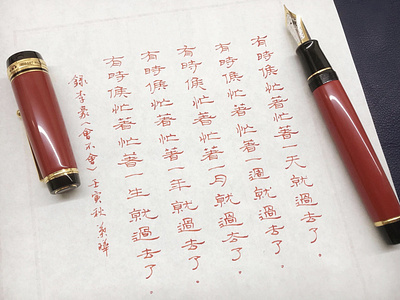 有時候忙著忙著一天就過去了。
有時候忙著忙著一週就過去了。
有時候忙著忙著一月就過去了。
有時候忙著忙著一年就過去了。
有時候忙著忙著一生就過去了。
錄李蒙〈會不會〉壬寅秋